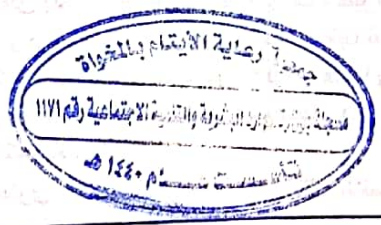 جمعية رعاية الأيتام بالمخواة
مسجلة بوزارة الموارد البشرية والتنمية الاجتماعية رقم ١١٧١
١٤٤٠ هـ